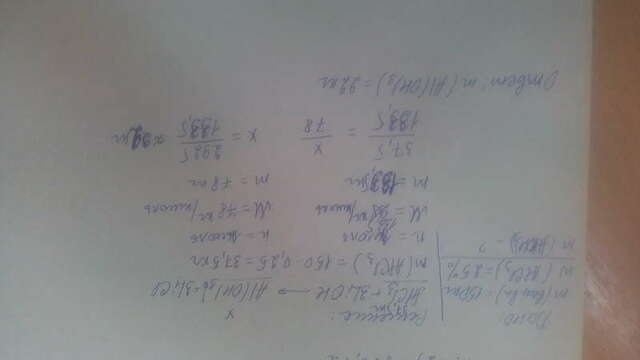 Дано:
m(
w(AlCl₃)=25%
m(
- ?
Решение:
x
AlCl₃+3LiOH → Al(OH)₃↓+3LiCl
m(AlCl₃) = 150 · 0,25 = 37,5 кг
n = кмоль n = кмоль
M = кг/кмоль M = 78 кг/кмоль
m = кг m = 78 кг
37,5/133,5 = x/78 x = 2925/133,5 ≈ 22 кг
Ответ: m(Al(OH)₃) = 22 кг